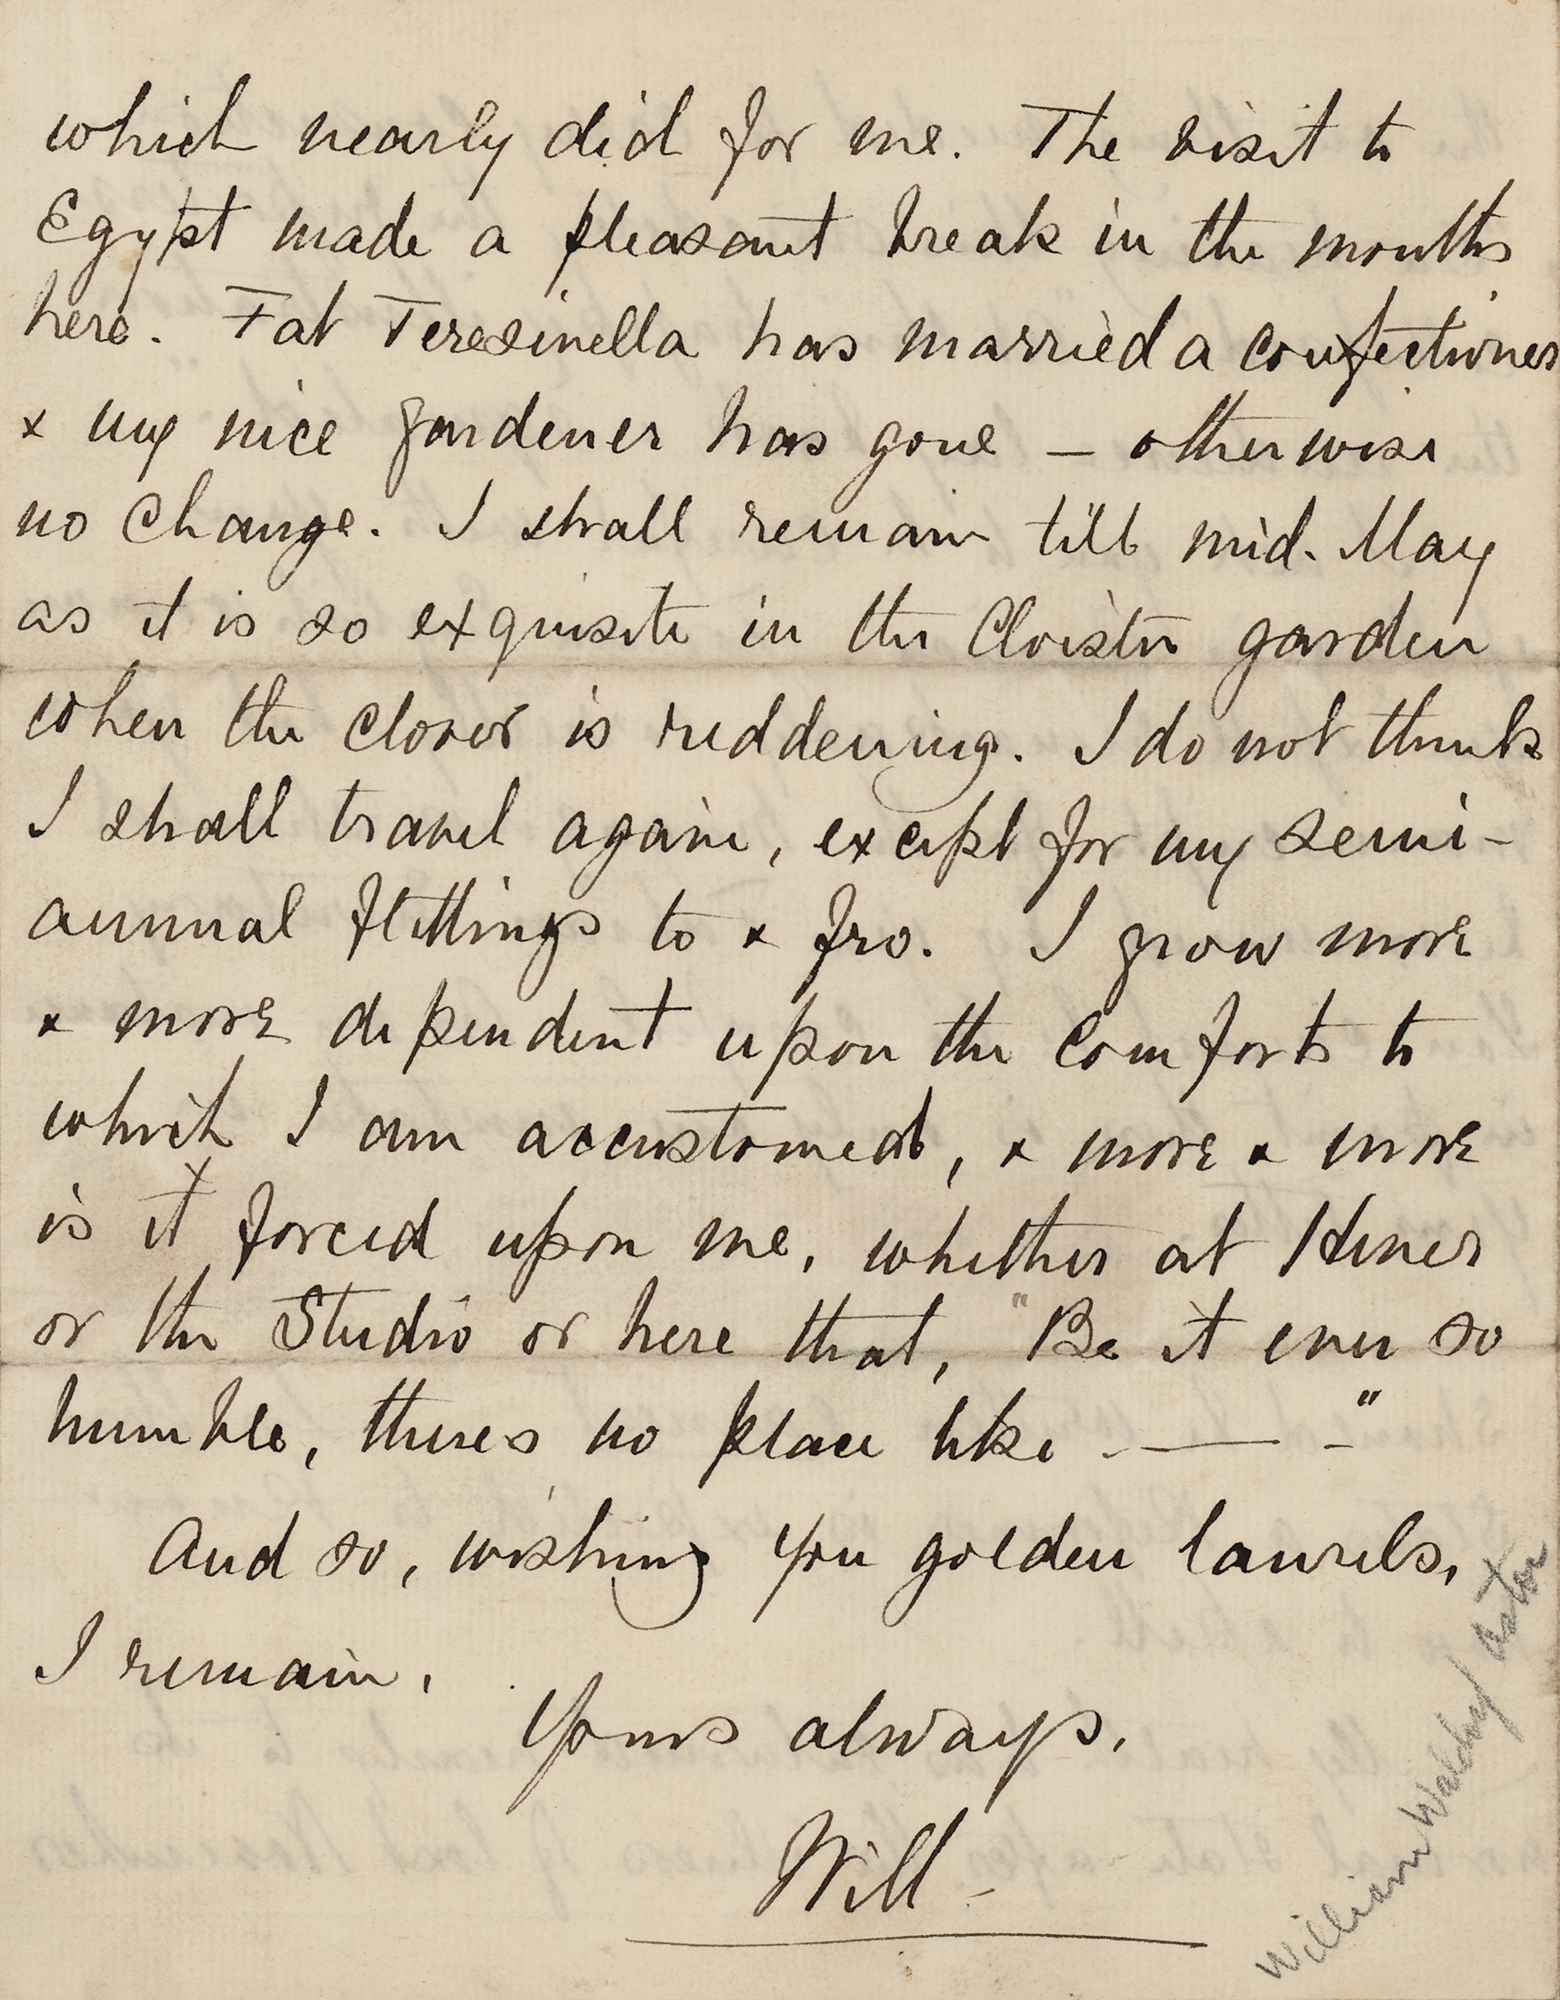 which nearly did for me. The visit to
Egypt made a pleasant break in the months
here. Fat Teresinella has married a confectioner
& my nice gardener has gone — otherwise
no change. I shall remain till mid-May
as it is so exquisite in the Cloister garden
when the clover is reddening. I do not think
I shall travel again, except for my semi-
annual flittings to & fro. I grow more
& more dependent upon the comforts to
which I am accustomed, & more & more
is it forced upon me, whether at Hever
or the Studio or here that, "Be it ever so
humble, theres no place like — — "
And so, wishing you golden laurels,
I remain,
Yours always,
Will —
William Waldorf Astor